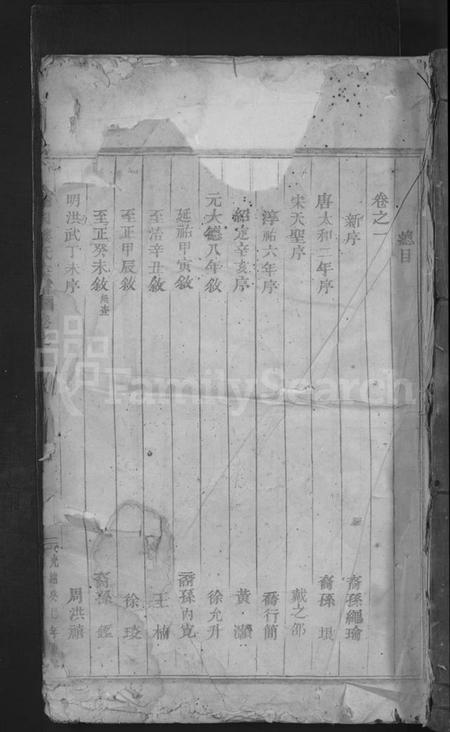 總目
卷之一
新序 裔孫繩瑜
唐太和二年序 裔孫垠
宋天聖序 戴之邵
淳祐六年序 喬行簡
紹定辛亥序 黃灝
元大德八年敘 徐允升
延祐甲寅敘 裔孫內寬
至治辛丑敘 王楠
至正甲辰敘 徐琰
至正癸未敘無查 裔孫鑑
明洪武丁未序 周洪禧
光緒癸巳年
FamilySearch